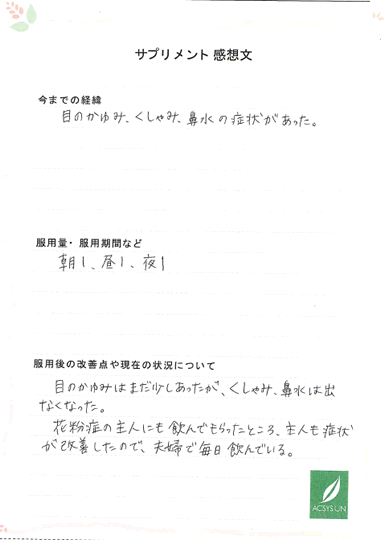 サプリメント 感想文
今までの経緯
目のかゆみ、くしゃみ、鼻水の症状があった。
服用量・服用期間など
朝1、昼1、夜1
服用後の改善点や現在の状況について
目のかゆみはまだ少しあったが、くしゃみ、鼻水は出
なくなった。
花粉症の主人にも飲んでもらったところ、主人も症状
が改善したので、夫婦で毎日飲んでいる。
ACSYSUN